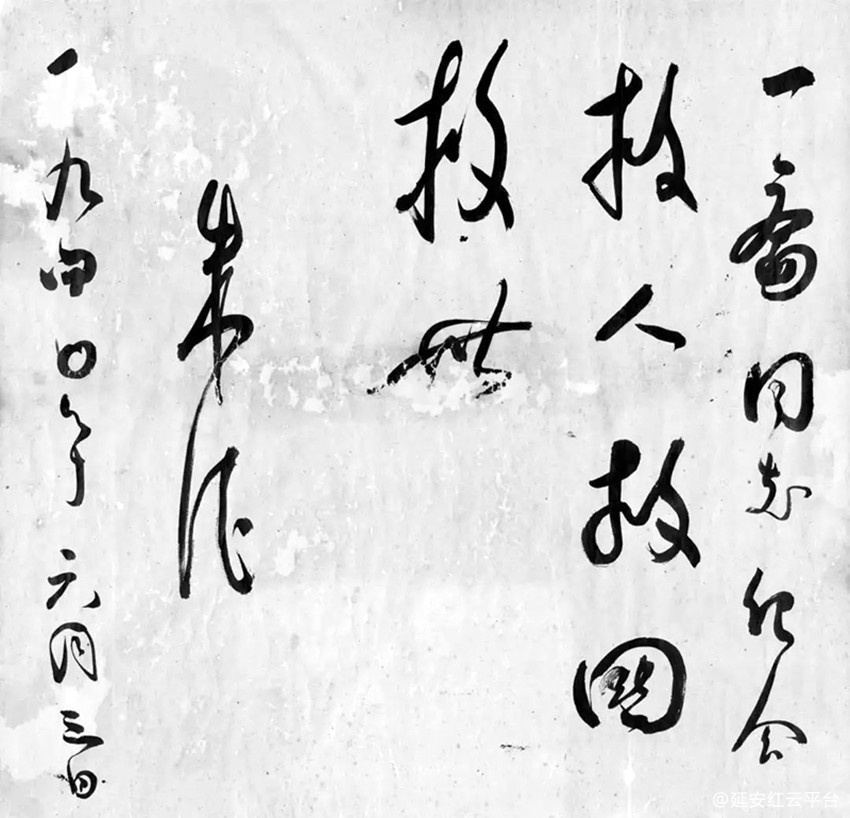 一斋同志纪念
救人救国
救世
朱德
一九四〇年六月三日
@延安红云平台